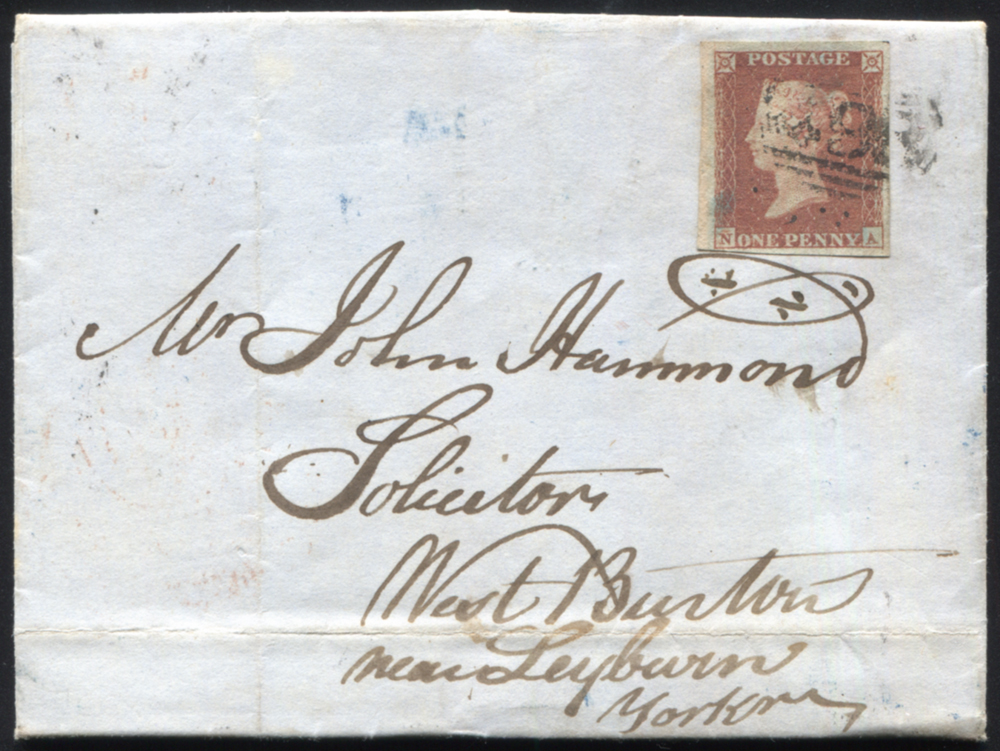 POSTAGE
49
N ONE PENNY A
Mr John Hammond
Solicitor
West Burton
near Leyburn